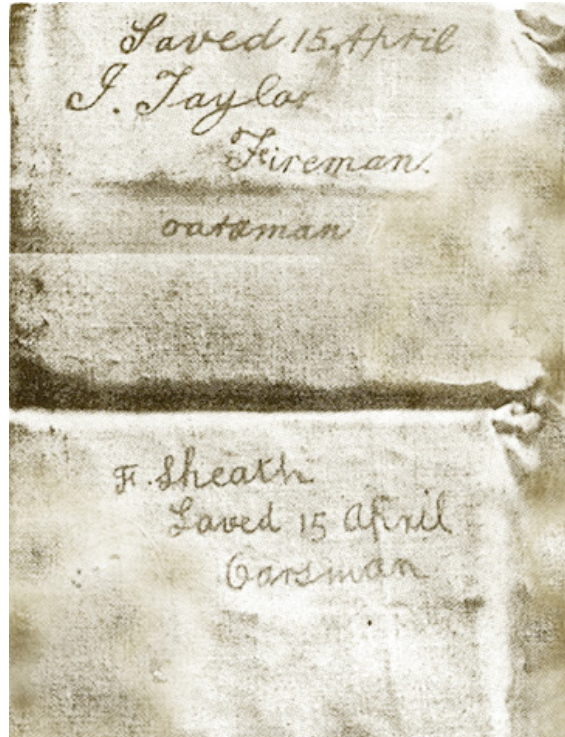 Saved 15 April
J. Taylor
Fireman.
oarsman
F. Sheath
Saved 15 April
Oarsman